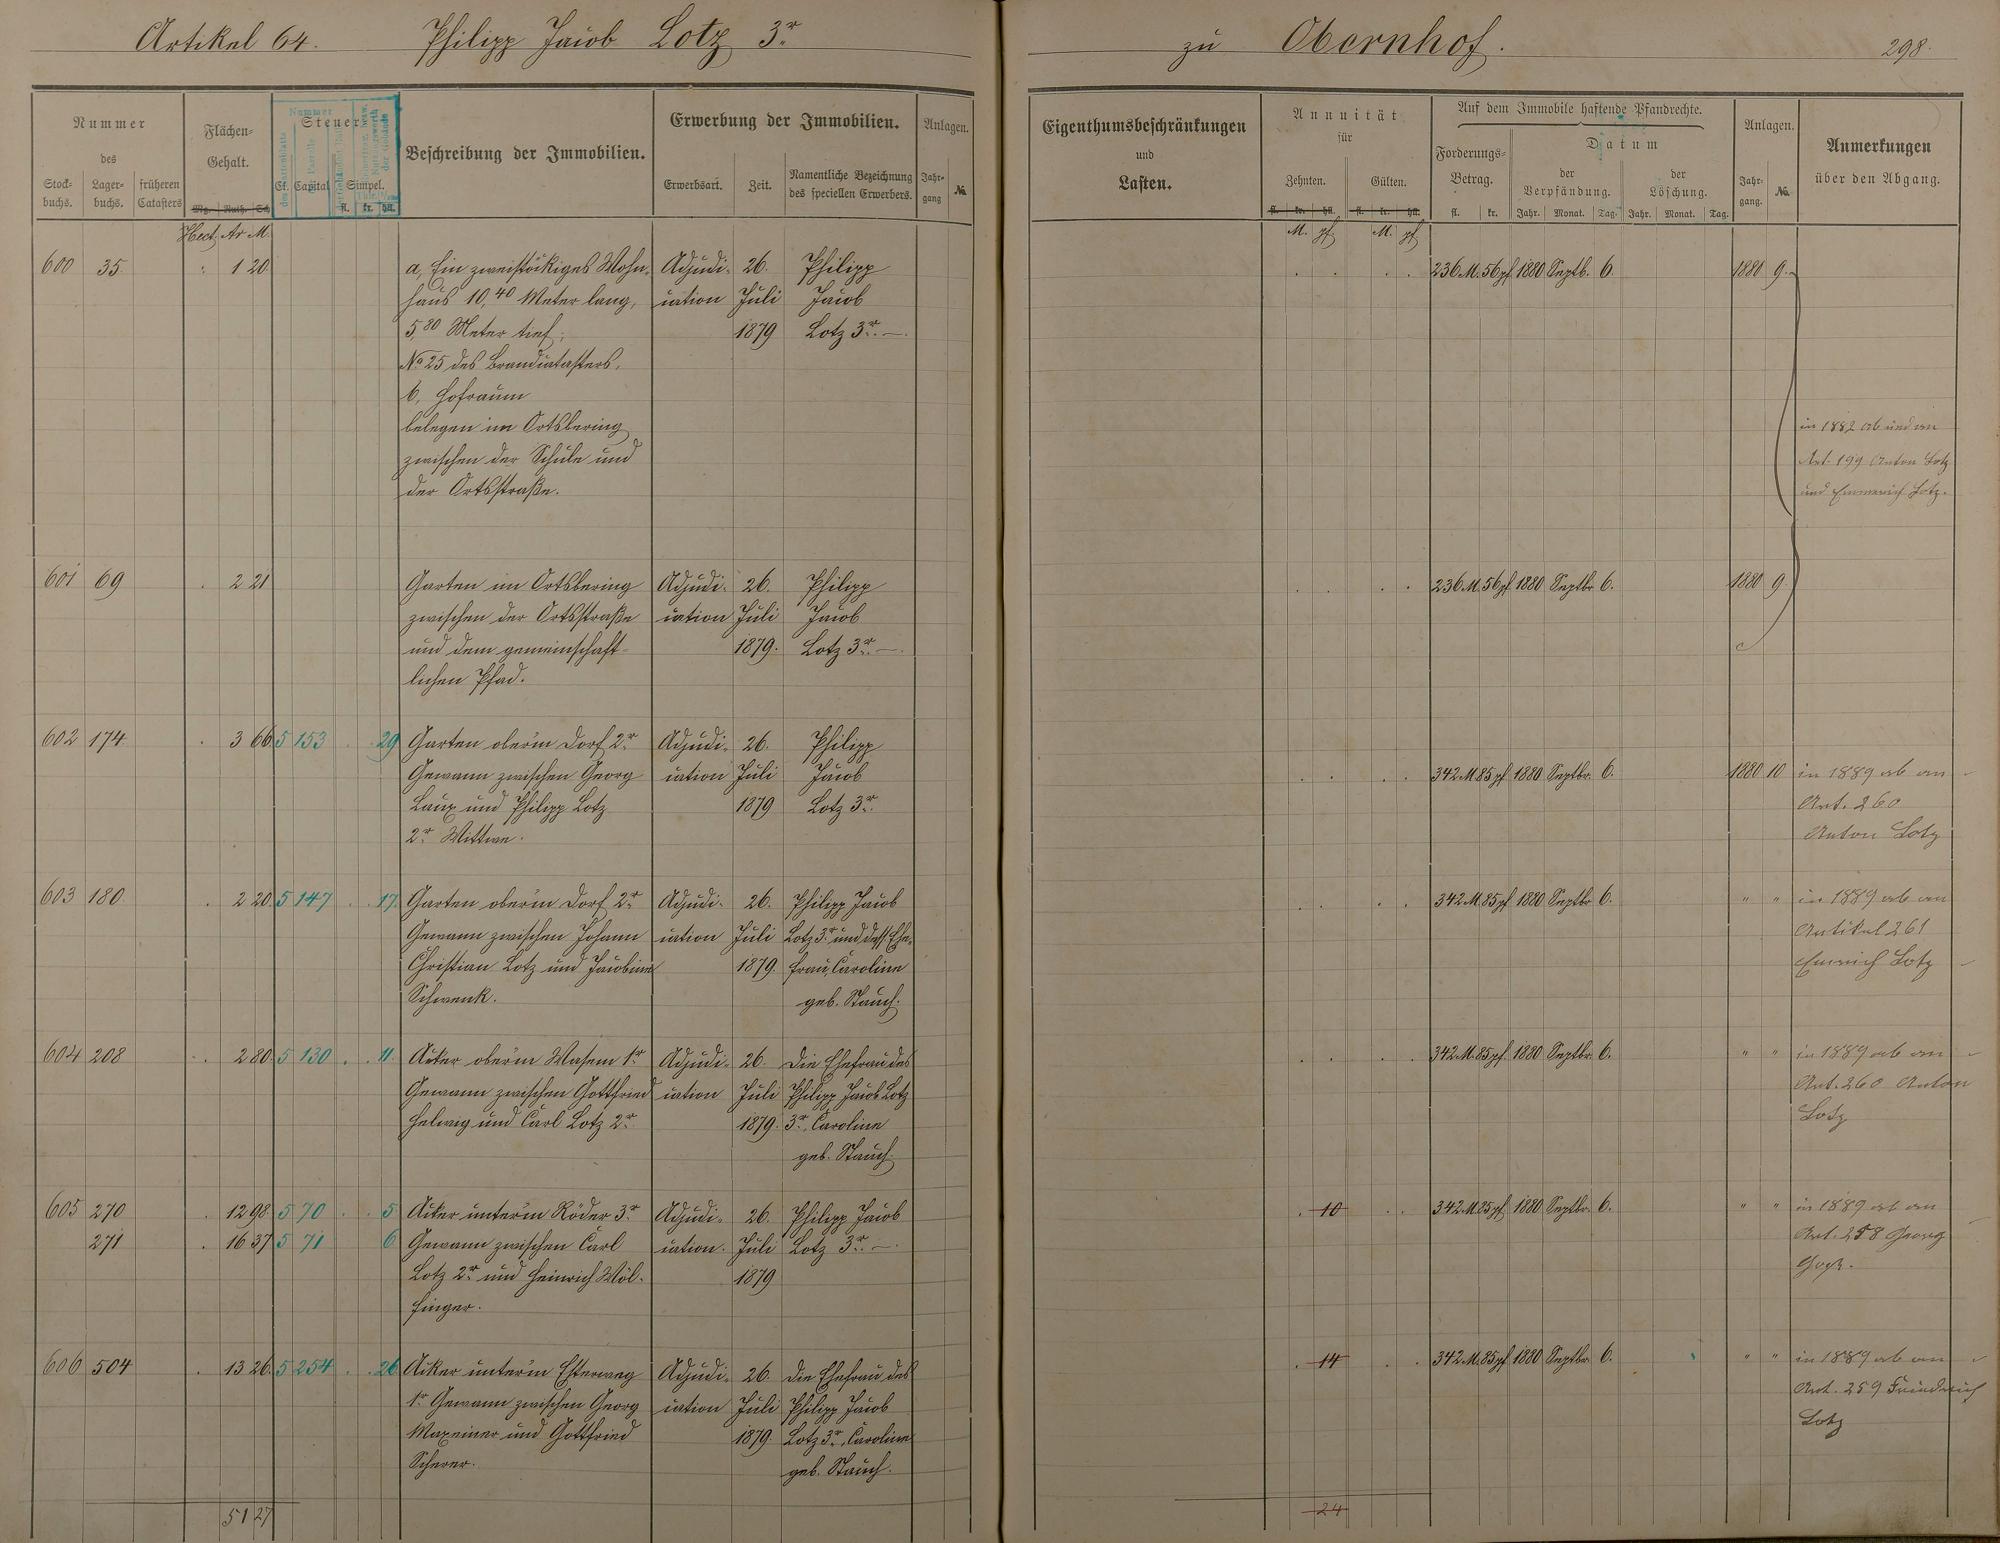 Artikel 64. Philipp Jacob Lotz 3r
zu Obernhof.
298.
Nummer
des
Stock-
buchs.
Lager-
buchs.
früheren
Catasters
Flächen-
Gehalt.
Mg. Ruth. Sch
Hect. Ar M.
Steuer
Nummer
Cl. Capital Simpel.
fl. kr. hll.
Beschreibung der Immobilien.
Erwerbung der Immobilien.
Erwerbsart.
Zeit.
Namentliche Bezeichnung
des speciellen Erwerbers.
Anlagen.
Jahr-
gang
No.
600 35. 1 20
a, Ein zweistöckiges Wohn-
haus 10,40 Meter lang,
5,80 Meter tief;
No 25 des Brandcatasters,
b, Hofraum
belegen im Ortsbering
zwischen der Schule und
der Ortsstraße.
Adjudi-
cation
26.
Juli
1879
Philipp
Jacob
Lotz 3r.
601 69 2 21
Garten im Ortsbering
zwischen der Ortsstraße
und dem gemeinschaft-
lichen Pfad.
Adjudi-
cation
26.
Juli
1879.
Philipp
Jacob
Lotz 3r.
602 174 3 66 5 153 29
Garten oberm Dorf 2r
Gewann zwischen Georg
Laux und Philipp Lotz
2r Wittwe.
Adjudi-
cation
26.
Juli
1879
Philipp
Jacob
Lotz 3r.
603 180 2 20 5 147 17.
Garten oberm Dorf 2r
Gewann zwischen Johann
Christian Lotz und Jacobine
Schwenk.
Adjudi-
cation
26.
Juli
1879.
Philipp Jacob
Lotz 3r und dess. Ehe-
frau, Caroline
geb. Stauch.
604 208 2 80 5 130 11
Acker oberm Wasem 1r
Gewann zwischen Gottfried
Helwig und Carl Lotz 2r
Adjudi-
cation
26.
Juli
1879.
Die Ehefrau des
Philipp Jacob Lotz
3r, Caroline
geb. Stauch
605 270 12 98 5 70 5
271 16 37 5 71 6
Acker unterm Röder 3r
Gewann zwischen Carl
Lotz 2r und Heinrich Wöl-
finger.
Adjudi-
cation.
26.
Juli
1879
Philipp Jacob
Lotz 3r.
606 504 13 26 5 254 26
Acker unterm Esterweg
1r Gewann zwischen Georg
Maxeiner und Gottfried
Scherer.
Adjudi-
cation
26.
Juli
1879.
Die Ehefrau des
Philipp Jacob
Lotz 3r, Caroline
geb. Stauch.
51 27
Eigenthumsbeschränkungen
und
Lasten.
Annuität
für
Zehnten.
Gülten.
fl. kr. hll. fl. kr. hll.
M. pf M. pf
Auf dem Immobile haftende Pfandrechte.
Forderungs-
Betrag.
fl. kr.
Datum
der
Verpfändung.
Jahr. Monat. Tag.
der
Löschung.
Jahr. Monat. Tag.
Anlagen.
Jahr-
gang.
No.
Anmerkungen
über den Abgang.
236 M. 56 pf 1880 Septb. 6. 1880 9.
in 1882 ab und an
Art. 199 Anton Lotz
und Emmerich Lotz.
236 M. 56 pf 1880 Septbr 6. 1880 9.
342 M. 85 pf 1880 Septbr. 6. 1880 10
in 1889 ab an
Art. 260
Anton Lotz
342 M. 85 pf 1880 Septbr 6. " "
in 1889 ab an
Artikel 261
Emrich Lotz
342 M. 85 pf. 1880 Septbr. 6. " "
in 1889 ab an
Art. 260 Anton
Lotz
10 342 M. 85 pf 1880 Septbr. 6. " "
in 1889 ab an
Art. 258 Georg
14 342 M. 85 pf 1880 Septbr. 6. " "
in 1889 ab an
Art. 259 Friedrich
Lotz
24